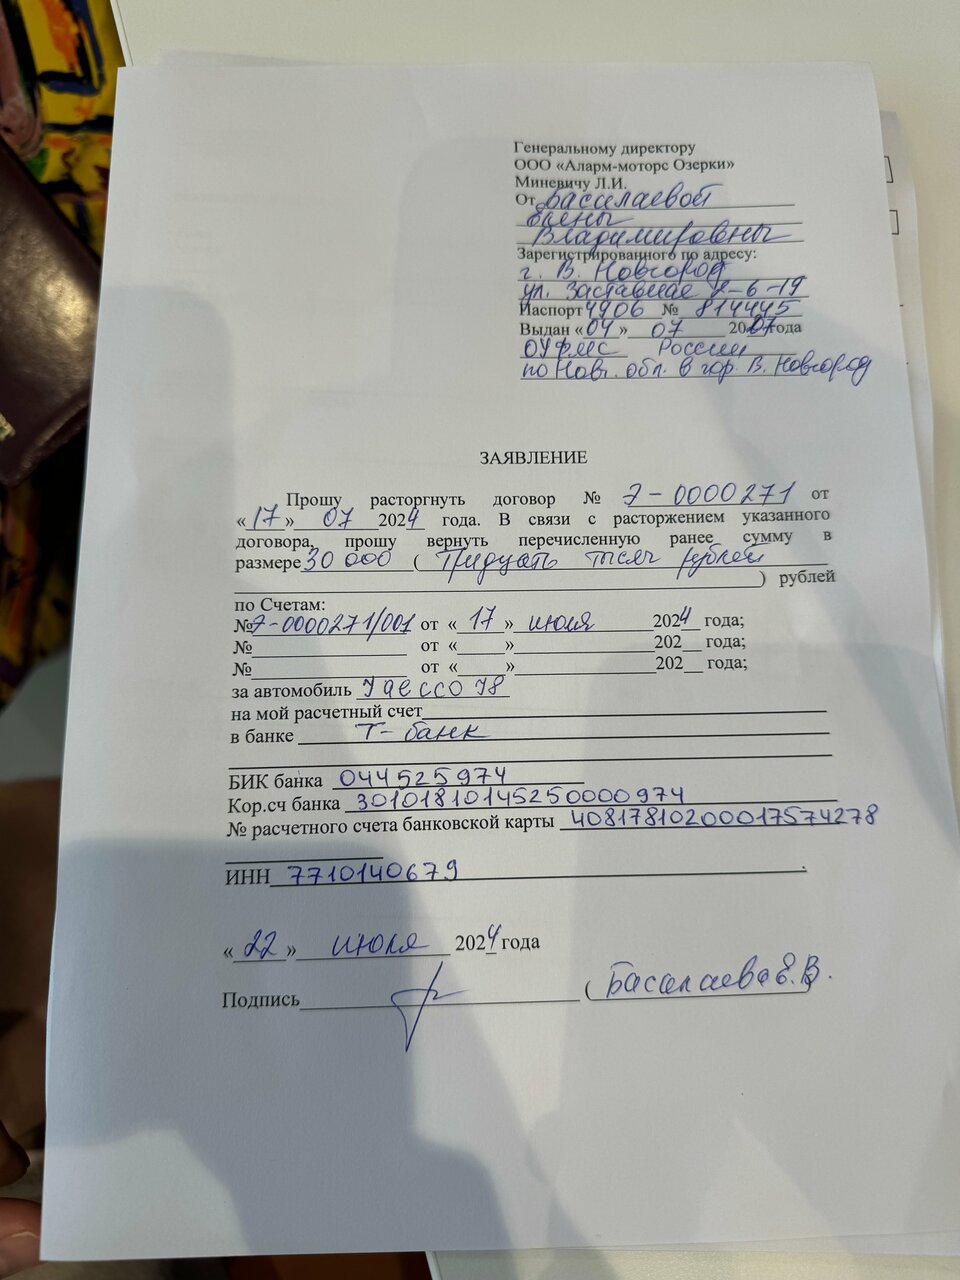 Генеральному директору
ООО «Аларм-моторс Озерки»
Миневичу Л.И.
От Басалаевой
Елены
Владимировны
Зарегистрированного по адресу:
г. В. Новгород
ул. Заставная 2-6-19
Паспорт 4906 № 814445
Выдан «04» 07 2007года
ОУФМС России
по Новг. обл. в гор. В. Новгород
ЗАЯВЛЕНИЕ
Прошу расторгнуть договор № Э-0000271 от
«17» 07 2024 года. В связи с расторжением указанного
договора, прошу вернуть перечисленную ранее сумму в
размере 30 000 ( Тридцать тысяч рублей
) рублей
по Счетам:
№Э-0000271/001 от «17» июля 2024 года;
№ от « » 202 года;
№ от « » 202 года;
за автомобиль Jaecoo J8
на мой расчетный счет
в банке Т-банк
БИК банка 044525974
Кор.сч банка 30101810145250000974
№ расчетного счета банковской карты 40817810200017574278
ИНН 7710140679.
«22» июля 2024 года
Подпись (Басалаева Е.В.)